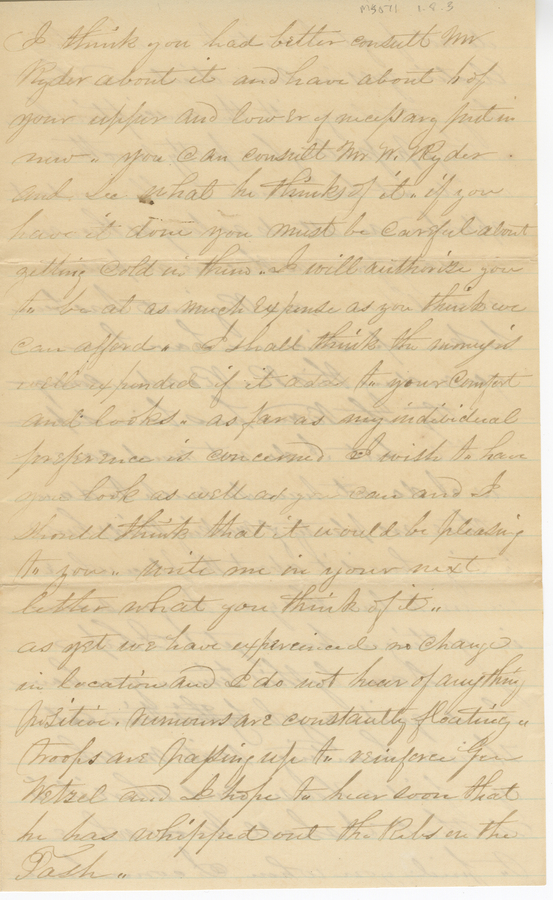 M3571 1.8.3
I think you had better consult Mr
Ryder about it and have about 4 of
your upper and lower if necessary put in
new " you can consult Mr W. Ryder .
and see what he thinks of it " if you
have it done you must be careful about
getting cold in them " I will authorize you
to be at as much expense as you think we
can afford " I shall think the money is
well expended if it adds to your comfort
and looks " as far as my individual
preference is concerned I wish to have
you look as well as you can and I
should think that it would be pleasing
to you " write me in your next
letter what you think of it "
as yet we have expereinced no change
in location and I do not hear of anything
positive . rumours are constantly floating "
troops are passing up to reinforce Gen
Wetzel and I hope to hear soon that
he has whipped out the Rebs on the